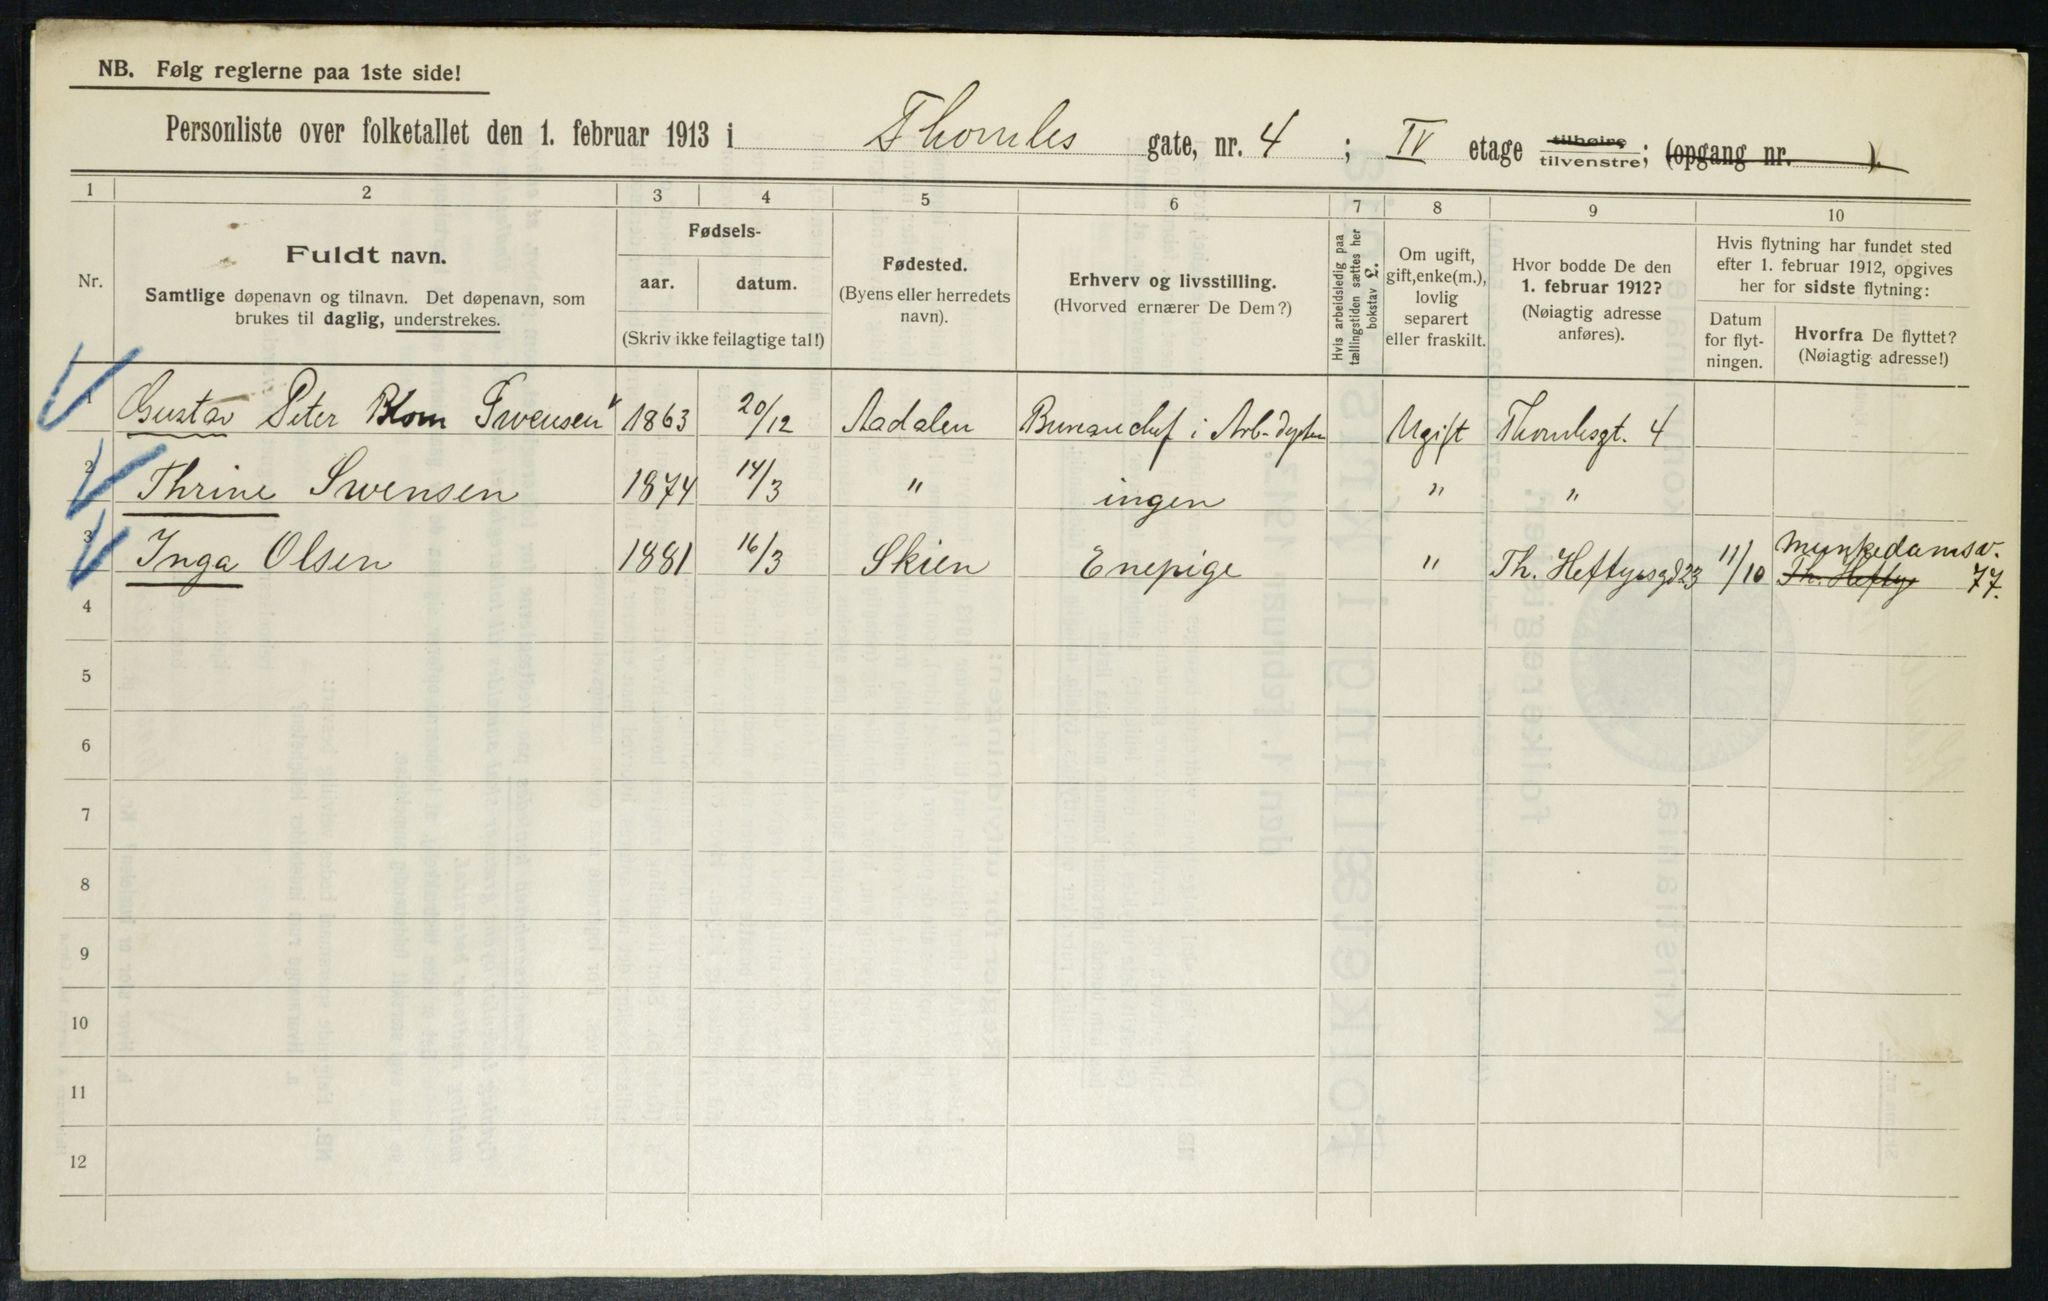 NB. Følg reglerne paa 1ste side!
Personliste over folketallet den 1. februar 1913 i Thomles gate, nr. 4 ; IV etage tilhøire tilvenstre; (opgang nr. ).
1 2 3 4 5 6 7 8 9 10
Nr.
Fuldt navn.
Samtlige døpenavn og tilnavn. Det døpenavn, som
brukes til daglig, understrekes.
Fødsels-
aar. datum.
(Skriv ikke feilagtige tal!)
Fødested.
(Byens eller herredets
navn).
Erhverv og livsstilling.
(Hvorved ernærer De Dem?)
Hvis arbeidsledig paa
tællingstiden sættes her
bokstav £.
Om ugift,
gift, enke(m.),
lovlig
separert
eller fraskilt.
Hvor bodde De den
1. februar 1912?
(Nøiagtig adresse
anføres).
Hvis flytning har fundet sted
efter 1. februar 1912, opgives
her for sidste flytning:
Datum
for flyt-
ningen.
Hvorfra De flyttet?
(Nøiagtig adresse!)
1 Gustav Peter Blom Swensen 1863 20/12 Aadalen Bureauchef i Arb-depten Ugift Thomlesgt. 4
2 Thrine Swensen 1874 14/3 " ingen " "
3 Inga Olsen 1881 16/3 Skien Enepige " Th. Heftyesgd 23 11/10 Munkedamsv. Th. Heftye 77.
4
5
6
7
8
9
10
11
12